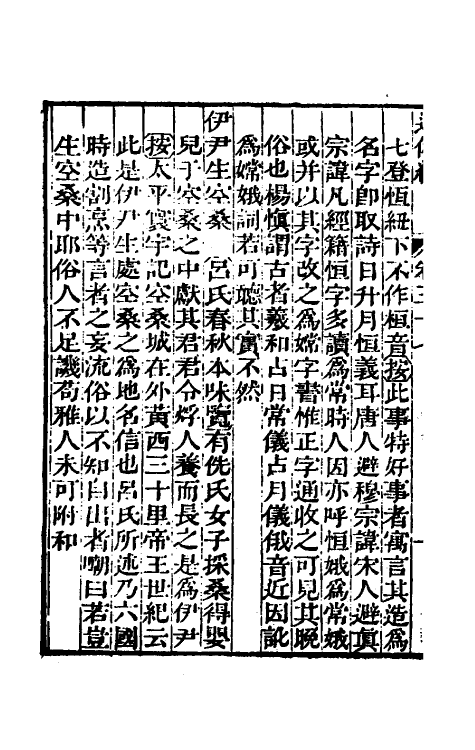 七登恆紐下不作桓音按此事特好事者寓言其造爲
名字卽取詩日升月恒義耳唐人避穆宗諱宋人避眞
宗諱凡經籍恒字多讀爲常時人因亦呼恒娥爲常娥
或并以其字改之爲嫦字書惟正字通收之可見其晚
俗也楊愼謂古者羲和占日常儀占月儀俄音近因訛
爲嫦娥詞若可聽其實不然
伊尹生空桑　呂氏春秋本味覽有侁氏女子採桑得嬰
兒于空桑之中獻其君君令烰人養而長之是爲伊尹
按太平寰宇記空桑城在外黃西三十里帝王世紀云
此是伊尹生處空桑之爲地名信也呂氏所述乃六國
時造割烹等言者之妄流俗以不知自出者嘲曰若豈
生空桑中耶俗人不足譏苟雅人未可附和